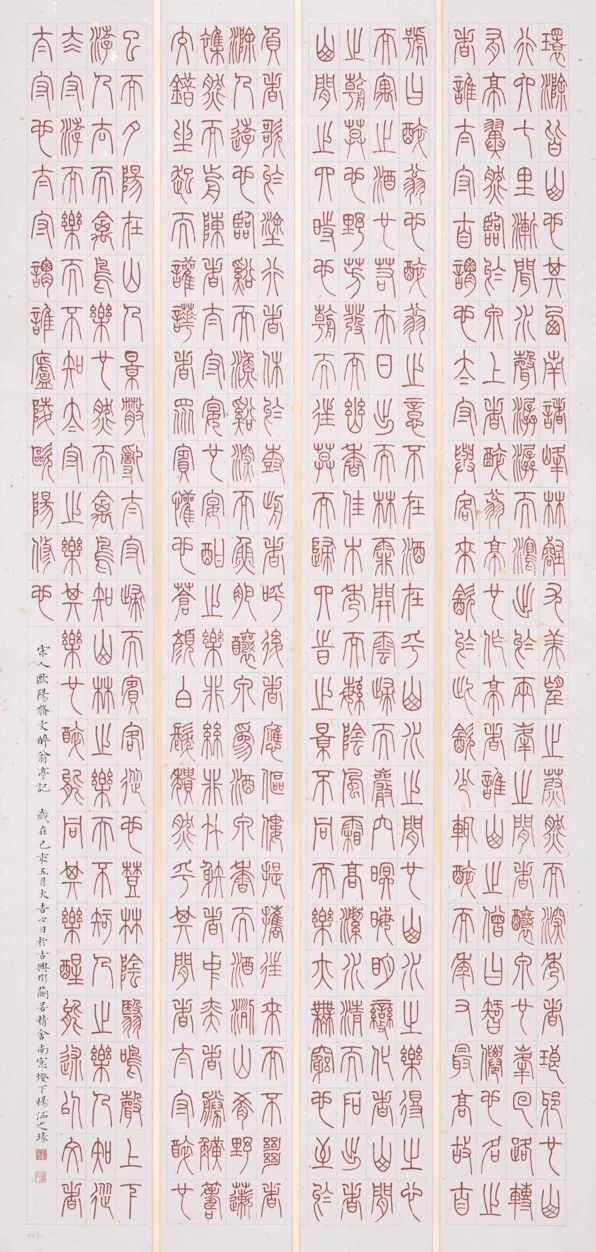 環滁皆山也其西南諸峰林壑尤美望之蔚然而深秀者琅琊也山
行六七里漸聞水聲潺潺而瀉出於兩峰之間者釀泉也峰回路轉
有亭翼然臨於泉上者醉翁亭也作亭者誰山之僧曰智僊也名之
者誰太守自謂也太守與客來飲於此飲少輒醉而年又最高故自
號曰醉翁也醉翁之意不在酒在乎山水之間也山水之樂得之心
而寓之酒也若夫日出而林霏開雲歸而巖穴暝晦明變化者山間
之朝暮也野芳發而幽香佳木秀而繁陰風霜高潔水清而石出者
山間之四時也朝而往暮而歸四時之景不同而樂亦無窮也至於
負者歌於塗行者休於樹前者呼後者應傴僂提攜往來而不絕者
滁人遊也臨谿而漁谿深而魚肥釀泉為酒泉香而酒洌山肴野蔌
雜然而前陳者太守宴也宴酣之樂非絲非竹射者中弈者勝觥籌
交錯坐起而諠譁者眾賓懽也蒼顏白髮頹然乎其間者太守醉也
已而夕陽在山人影散亂太守歸而賓客從也樹林陰翳鳴聲上下
游人去而禽鳥樂也然而禽鳥知山林之樂而不知人之樂人知從
太守游而樂而不知太守之樂其樂也醉能同其樂醒能述以文者
太守也太守謂誰廬陵歐陽修也
宋人歐陽脩文醉翁亭記 歲在己亥五月大吉之日於古興州蘭若精舍南窗燈下楊之琢